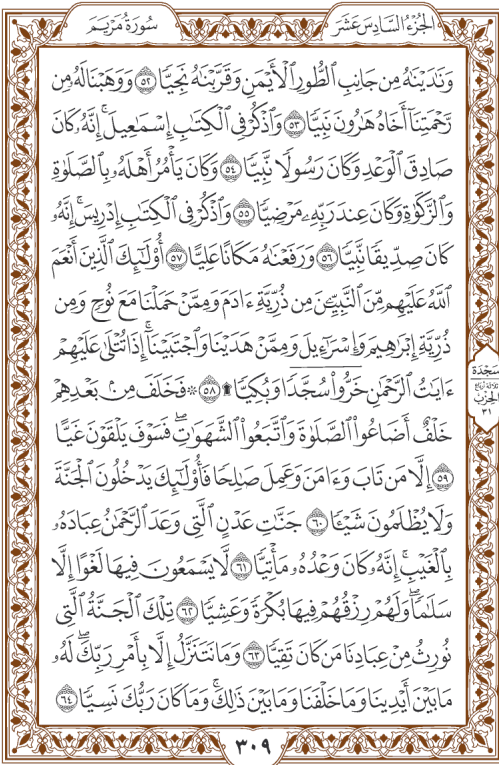 الجزء السادس عشر
سورة مريم
وَنَٰدَيْنَٰهُ مِن جَانِبِ ٱلطُّورِ ٱلْأَيْمَنِ وَقَرَّبْنَٰهُ نَجِيًّا ٥٢ وَوَهَبْنَا لَهُۥ مِن
رَّحْمَتِنَآ أَخَاهُ هَٰرُونَ نَبِيًّا ٥٣ وَٱذْكُرْ فِى ٱلْكِتَٰبِ إِسْمَٰعِيلَ ۚ إِنَّهُۥ كَانَ
صَادِقَ ٱلْوَعْدِ وَكَانَ رَسُولًا نَّبِيًّا ٥٤ وَكَانَ يَأْمُرُ أَهْلَهُۥ بِٱلصَّلَوٰةِ
وَٱلزَّكَوٰةِ وَكَانَ عِندَ رَبِّهِۦ مَرْضِيًّا ٥٥ وَٱذْكُرْ فِى ٱلْكِتَٰبِ إِدْرِيسَ ۚ إِنَّهُۥ
كَانَ صِدِّيقًا نَّبِيًّا ٥٦ وَرَفَعْنَٰهُ مَكَانًا عَلِيًّا ٥٧ أُو۟لَٰٓئِكَ ٱلَّذِينَ أَنْعَمَ
ٱللَّهُ عَلَيْهِم مِّنَ ٱلنَّبِيِّـۧنَ مِن ذُرِّيَّةِ ءَادَمَ وَمِمَّنْ حَمَلْنَا مَعَ نُوحٍ وَمِن
ذُرِّيَّةِ إِبْرَٰهِيمَ وَإِسْرَٰٓءِيلَ وَمِمَّنْ هَدَيْنَا وَٱجْتَبَيْنَآ ۚ إِذَا تُتْلَىٰ عَلَيْهِمْ
ءَايَٰتُ ٱلرَّحْمَٰنِ خَرُّوا۟ سُجَّدًا وَبُكِيًّا ۩ ٥٨ ۞ فَخَلَفَ مِنۢ بَعْدِهِمْ
خَلْفٌ أَضَاعُوا۟ ٱلصَّلَوٰةَ وَٱتَّبَعُوا۟ ٱلشَّهَوَٰتِ ۖ فَسَوْفَ يَلْقَوْنَ غَيًّا
٥٩ إِلَّا مَن تَابَ وَءَامَنَ وَعَمِلَ صَٰلِحًا فَأُو۟لَٰٓئِكَ يَدْخُلُونَ ٱلْجَنَّةَ
وَلَا يُظْلَمُونَ شَيْـًٔا ٦٠ جَنَّٰتِ عَدْنٍ ٱلَّتِى وَعَدَ ٱلرَّحْمَٰنُ عِبَادَهُۥ
بِٱلْغَيْبِ ۚ إِنَّهُۥ كَانَ وَعْدُهُۥ مَأْتِيًّا ٦١ لَّا يَسْمَعُونَ فِيهَا لَغْوًا إِلَّا
سَلَٰمًا ۖ وَلَهُمْ رِزْقُهُمْ فِيهَا بُكْرَةً وَعَشِيًّا ٦٢ تِلْكَ ٱلْجَنَّةُ ٱلَّتِى
نُورِثُ مِنْ عِبَادِنَا مَن كَانَ تَقِيًّا ٦٣ وَمَا نَتَنَزَّلُ إِلَّا بِأَمْرِ رَبِّكَ ۖ لَهُۥ
مَا بَيْنَ أَيْدِينَا وَمَا خَلْفَنَا وَمَا بَيْنَ ذَٰلِكَ ۚ وَمَا كَانَ رَبُّكَ نَسِيًّا ٦٤
سجدة
ثلاثة أرباع
الحزب
٣١
٣٠٩